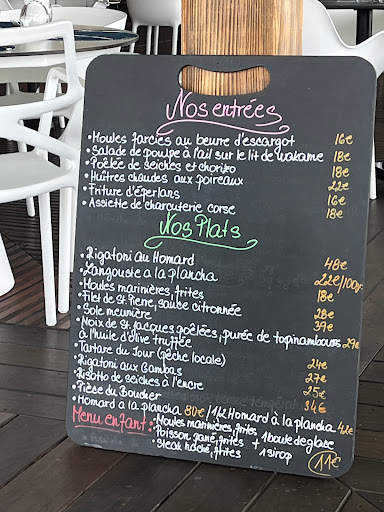 Nos entrées
• Moules farcies au beure d'escargot 16€
• Salade de poulpe à l'ail sur le lit de wakame 18€
• Poêlée de seiches et chorizo 18€
• Huîtres chaudes aux poireaux 22€
• Friture d'éperlans 16€
• Assiette de charcuterie corse 18€
Nos Plats
• Rigatoni au Homard 48€
• Langouste a la plancha 22€/100gr
• Moules marinières, frites 18€
• Filet de St Pierre, sauce citronnée 28€
• Sole meunière 39€
• Noix de St Jacques poêlées, purée de topinambours 29€
à l'huile d'olive truffée
• Tartare du Jour (pêche locale) 24€
• Rigatoni aux Gambas 27€
• Risotto de seiches à l'encre 25€
• Pièce du Boucher 34€
• Homard a la plancha 80€ / 1/2 Homard à la plancha 42€
Menu enfant: • Moules marinières, frites,
• Poisson pané, frites + 1 boule de glace
• Steak haché, frites + 1 sirop 11€